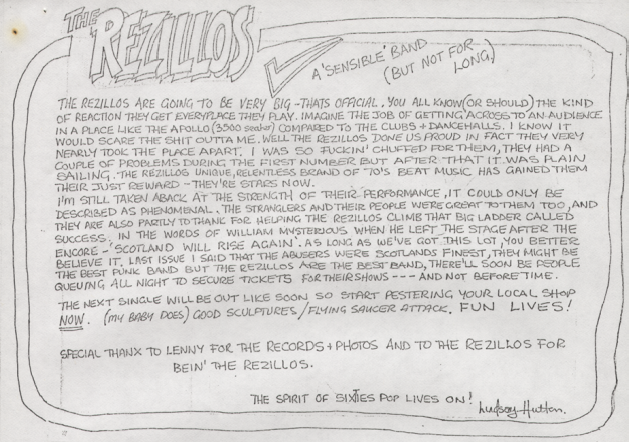 THE REZILLOS
A 'SENSIBLE' BAND
(BUT NOT FOR LONG)
THE REZILLOS ARE GOING TO BE VERY BIG - THATS OFFICIAL, YOU ALL KNOW (OR SHOULD) THE KIND
OF REACTION THEY GET EVERYPLACE THEY PLAY. IMAGINE THE JOB OF GETTING ACROSS TO AN AUDIENCE
IN A PLACE LIKE THE APOLLO (3500 seater) COMPARED TO THE CLUBS + DANCEHALLS. I KNOW IT
WOULD SCARE THE SHIT OUTTA ME. WELL THE REZILLOS DONE US PROUD IN FACT THEY VERY
NEARLY TOOK THE PLACE APART. I WAS SO FUCKIN' CHUFFED FOR THEM, THEY HAD A
COUPLE OF PROBLEMS DURING THE FIRST NUMBER BUT AFTER THAT IT WAS PLAIN
SAILING. THE REZILLOS UNIQUE, RELENTLESS BRAND OF '70'S BEAT MUSIC HAS GAINED THEM
THEIR JUST REWARD - THEY'RE STARS NOW.
I'M STILL TAKEN ABACK AT THE STRENGTH OF THEIR PERFORMANCE, IT COULD ONLY BE
DESCRIBED AS PHENOMENAL. THE STRANGLERS AND THEIR PEOPLE WERE GREAT TO THEM TOO, AND
THEY ARE ALSO PARTLY TO THANK FOR HELPING THE REZILLOS CLIMB THAT BIG LADDER CALLED
SUCCESS. IN THE WORDS OF WILLIAM MYSTERIOUS WHEN HE LEFT THE STAGE AFTER THE
ENCORE - 'SCOTLAND WILL RISE AGAIN'. AS LONG AS WE'VE GOT THIS LOT, YOU BETTER
BELIEVE IT. LAST ISSUE I SAID THAT THE ABUSERS WERE SCOTLANDS FINEST, THEY MIGHT BE
THE BEST PUNK BAND BUT THE REZILLOS ARE THE BEST BAND, THERE'LL SOON BE PEOPLE
QUEUING ALL NIGHT TO SECURE TICKETS FOR THEIR SHOWS --- AND NOT BEFORE TIME.
THE NEXT SINGLE WILL BE OUT LIKE SOON SO START PESTERING YOUR LOCAL SHOP
NOW. (MY BABY DOES) GOOD SCULPTURES / FLYING SAUCER ATTACK. FUN LIVES!
SPECIAL THANX TO LENNY FOR THE RECORDS + PHOTOS AND TO THE REZILLOS FOR
BEIN' THE REZILLOS.
THE SPIRIT OF SIXTIES POP LIVES ON!
Lindsay Hutton.